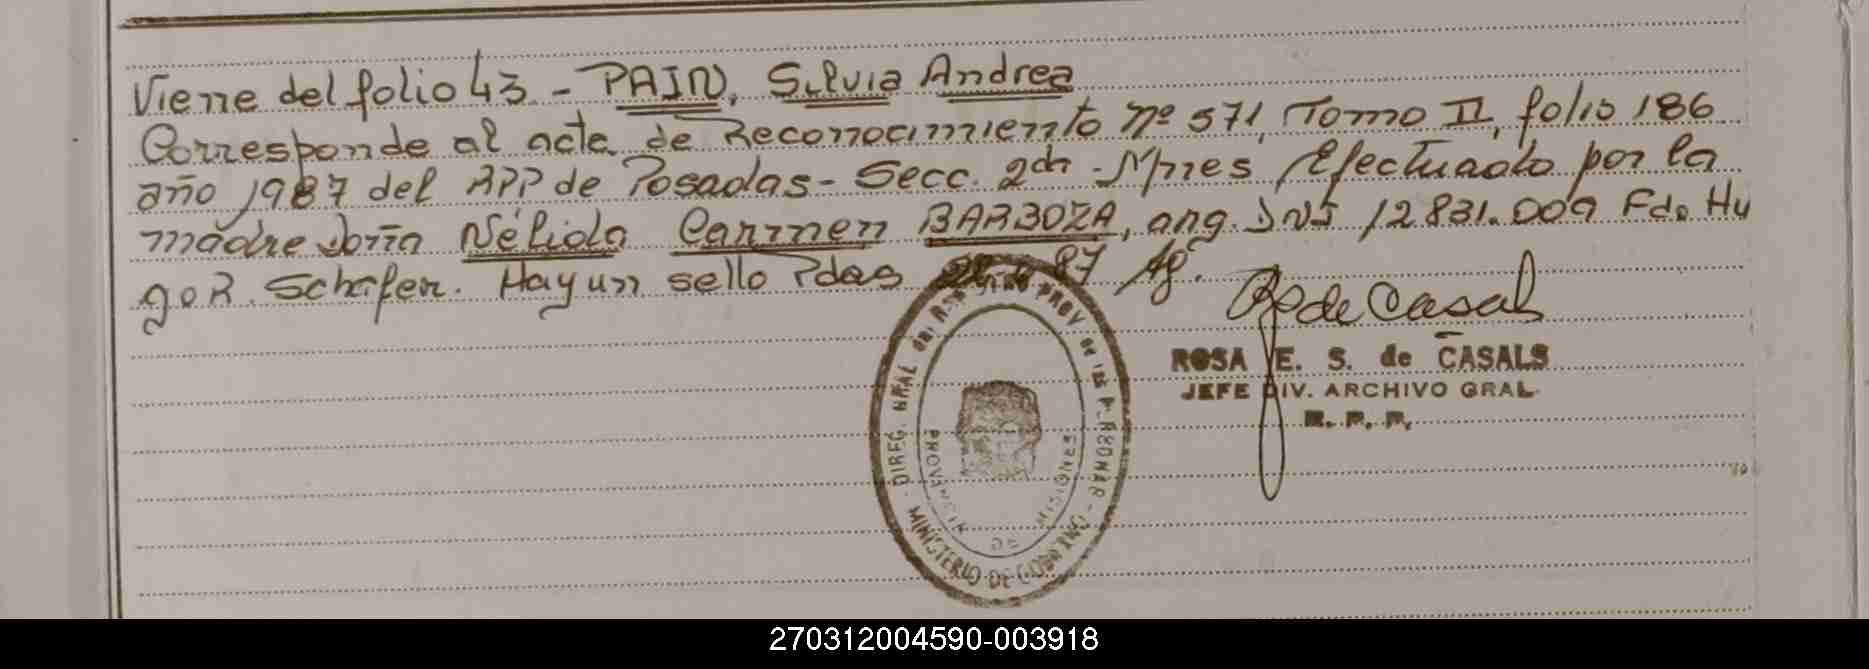 Viene del folio 43 - PAIN, Silvia Andrea
Corresponde al acta de Reconocimiento Nº 571, Tomo II, folio 186
año 1987 del RPP de Posadas - Secc. 2da - Mnes, Efectuado por la
madre doña Nélida Carmen BARBOZA, arg. DNI 12831.009 Fdo Hu
go R. Schafer. Hay un sello Pdas 87
ROSA E. S. de CASALS
JEFE DIV. ARCHIVO GRAL
R. P. P.
DIREG. NRAL del PROV de las PERSONAS
MINISTERIO DE GOBIERNO
PROVINCIA DE MISIONES
270312004590-003918